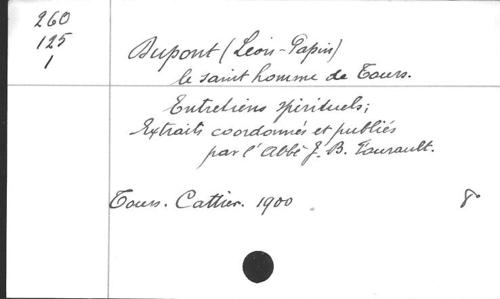 260
125
1
Dupont (Léon-Papin)
le saint homme de Tours.
Entretiens spirituels;
Extraits coordonnés et publiés
par l'Abbé J. B. Fourault.
Tours. Cattier. 1900 8º